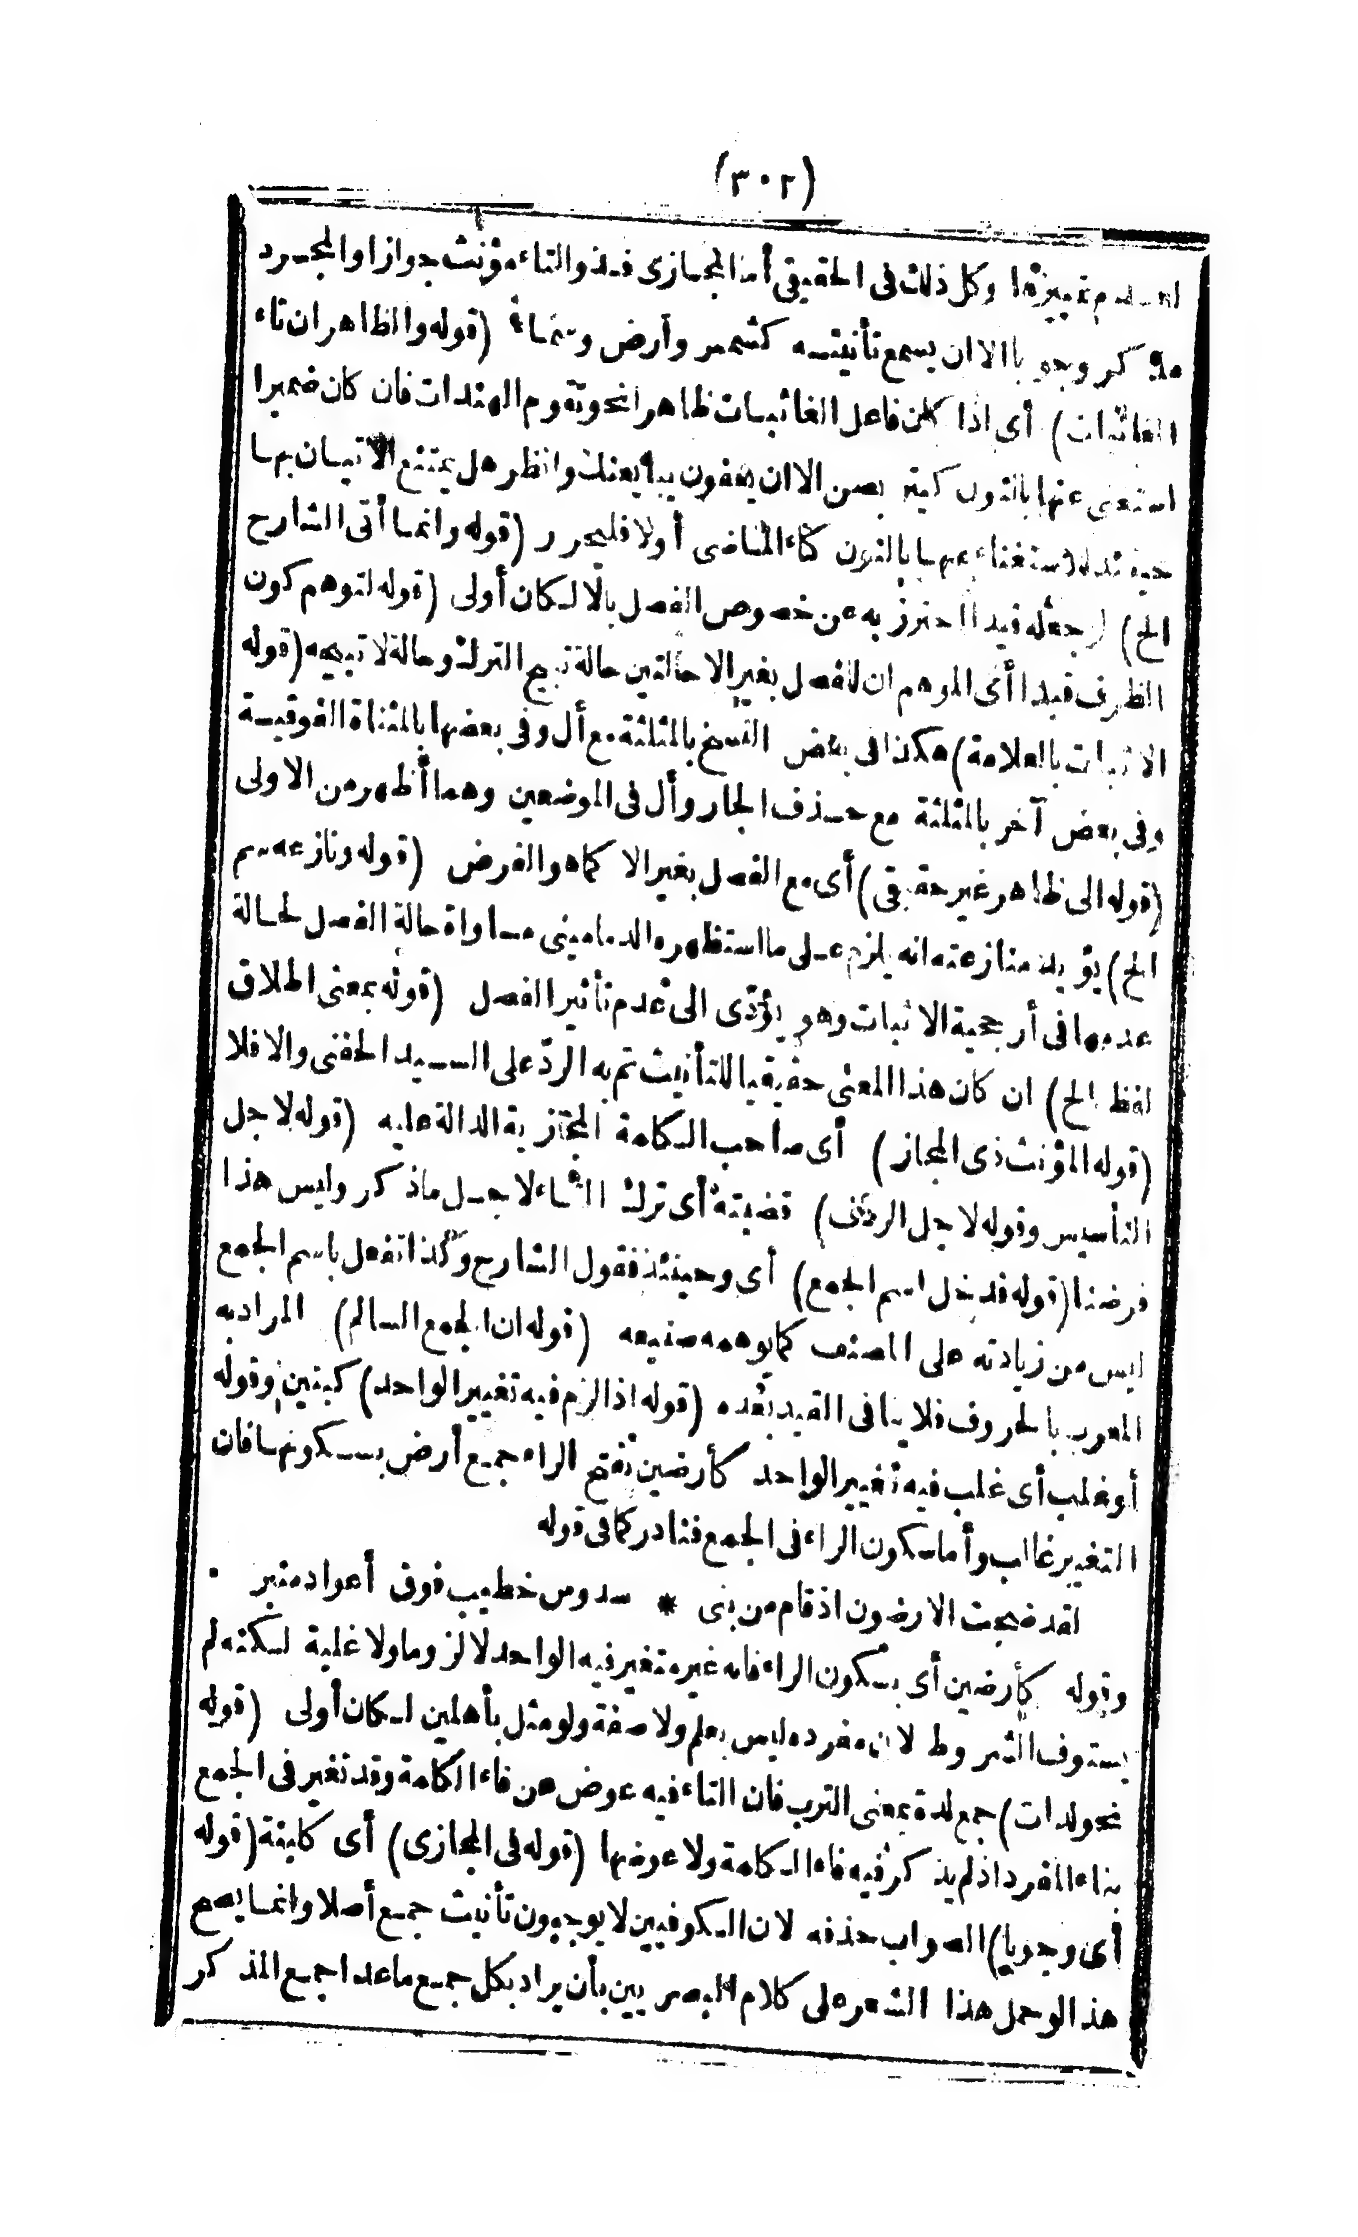 (٣٠٢)
لعدم تمييزها وكل ذلك فى الحقيقى أما المجازى فذو التاء مؤنث جوازا والمجرد
مذكر وجوبا الا ان يسمع تأنيثه كشمس وأرض وسماء (قوله والظاهر ان تاء
الغائبات) أى اذا كان فاعل الغائبات ظاهرا نحو تقوم الهندات فان كان ضميرا
استغنى عنها بالنون كيتربصن الا ان يعفون يبايعنك وانظر هل يمتنع الاتيان بها
حينئذ للاستغناء عنها بالنون كتاء الماضى أولا فليحرر (قوله وانما أتى الشارح
الخ) لو جعله قيدا احترز به عن خصوص الفصل بالا لكان أولى (قوله لتوهم كون
الظرف قيدا) أى الموهم ان للفصل بغير الا حالتين حالة تبيح الترك وحالة لا تبيحه (قوله
الاثبات بالعلامة) هكذا فى بعض النسخ بالمثلثة مع أل وفى بعضها بالمثناة الفوقية
وفى بعض آخر بالمثلثة مع حذف الجار وأل فى الموضعين وهما أظهر من الاولى
(قوله الى ظاهر غير حقيقى) أى مع الفصل بغير الا كما هو الفرض (قوله ونازعه سم
الخ) يؤيد منازعته انه يلزم على ما استظهره الدمامينى مساواة حالة الفصل لحالة
عدمها فى أرجحية الاثبات وهو يؤدّى الى عدم تأثير الفصل (قوله بمعنى اطلاق
لفظ الخ) ان كان هذا المعنى حقيقيا للتأنيث تم به الردّ على السيد الحفنى والا فلا
(قوله المؤنث ذى المجاز) أى صاحب الكلمة المجتز ية الدالة عليه (قوله لاجل
التأسيس وقوله لاجل الردفى) قضيته أى ترك التاء لاجل ماذكر وليس هذا
فرضنا (قوله قد يدخل اسم الجمع) أى وحينئذ فقول الشارح وكذا تفعل باسم الجمع
ليس من زيادته على المصنف كما يوهمه صنيعه (قوله ان الجمع السالم) المراد به
المعرب بالحروف فلا ينافى القيد بعده (قوله اذا لزم فيه تغيير الواحد) كبنين وقوله
أو غلب أى غلب فيه تغيير الواحد كأرضين بفتح الراء جمع أرض بسكونها فان
التغيير غالب وأما سكون الراء فى الجمع فنادر كما فى قوله
لقد ضجت الارضون اذ قام من بنى * سدوس خطيب فوق أعواد منبر
وقوله كأرضين أى بسكون الراء فانه غير متغير فيه الواحد لا لزوما ولا غلبة لكنه لم
يستوف الشروط لان مفرده ليس بعلم ولا صفة ولو مثل بأهلين لكان أولى (قوله
نحو لدات) جمع لدة بمعنى الترب فان التاء فيه عوض عن فاء الكلمة وقد تغير فى الجمع
بناء المفرد اذ لم يذكر فيه فاء الكلمة ولا عوضها (قوله فى المجازى) أى كابنة (قوله
أى وجوبا) الصواب حذفه لان الكوفيين لا يوجبون تأنيث جمع أصلا وانما يصح
هذا لو حمل هذا الشعر على كلام البصريين بأن يراد بكل جمع ما عدا جمع المذكر